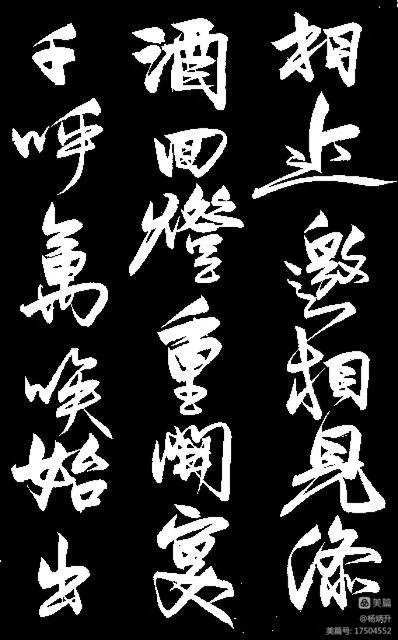 相近邀相見添
酒回燈重開宴
千呼萬喚始出
美篇
@杨炳升
美篇号: 17504552